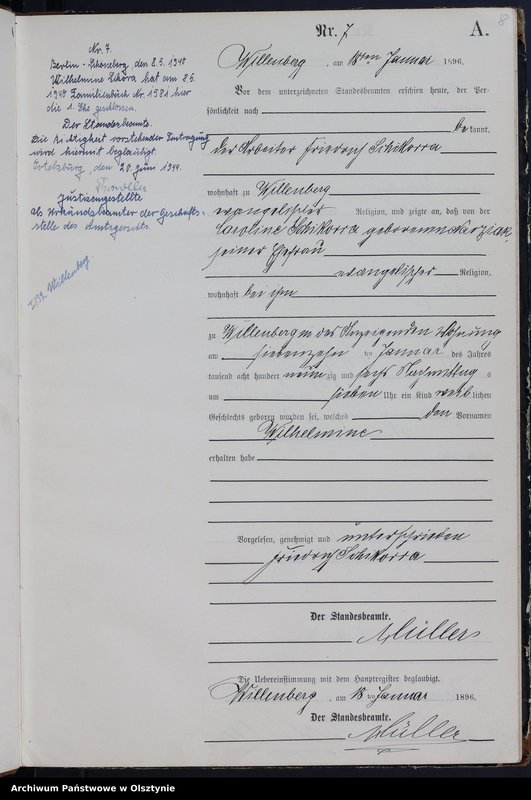 8
Nr. 7
A.
Willenberg, am 18ten Januar 1896.
Vor dem unterzeichneten Standesbeamten erschien heute, der Per-
sönlichkeit nach
be kannt,
der Arbeiter Friedrich Schikorra
wohnhaft zu Willenberg
evangelischer Religion, und zeigte an, daß von der
Caroline Schikorra geborenen Karziak,
seiner Ehefrau
evangelischer Religion,
wohnhaft bei ihm
zu Willenberg in des Anzeigenden Wohnung
am siebenzehn ten Januar des Jahres
tausend acht hundert neunzig und sechs Nachmittag s
um sieben Uhr ein Kind weiblichen
Geschlechts geboren worden sei, welches den Vornamen
Wilhelmine
erhalten habe
Vorgelesen, genehmigt und unterschrieben
Friedrich Schikorra
Der Standesbeamte.
Müller
Die Uebereinstimmung mit dem Hauptregister beglaubigt.
Willenberg, am 18 ten Januar 1896.
Der Standesbeamte.
Müller
Nr. 7.
Berlin-Schöneberg den 8.5.1940
Wilhelmine Sikora hat am 8.5.
1940 Familienbuch Nr. 1581 hier
die 1. Ehe geschlossen.
Der Standesbeamte.
Die Richtigkeit vorstehender Eintragung
wird hiermit beglaubigt
Ortelsburg, den 20. Juni 1944.
Justizangestellte
als Urkundsbeamter der Geschäfts-
stelle des Amtsgerichts.
I/132 Willenberg
Archiwum Państwowe w Olsztynie